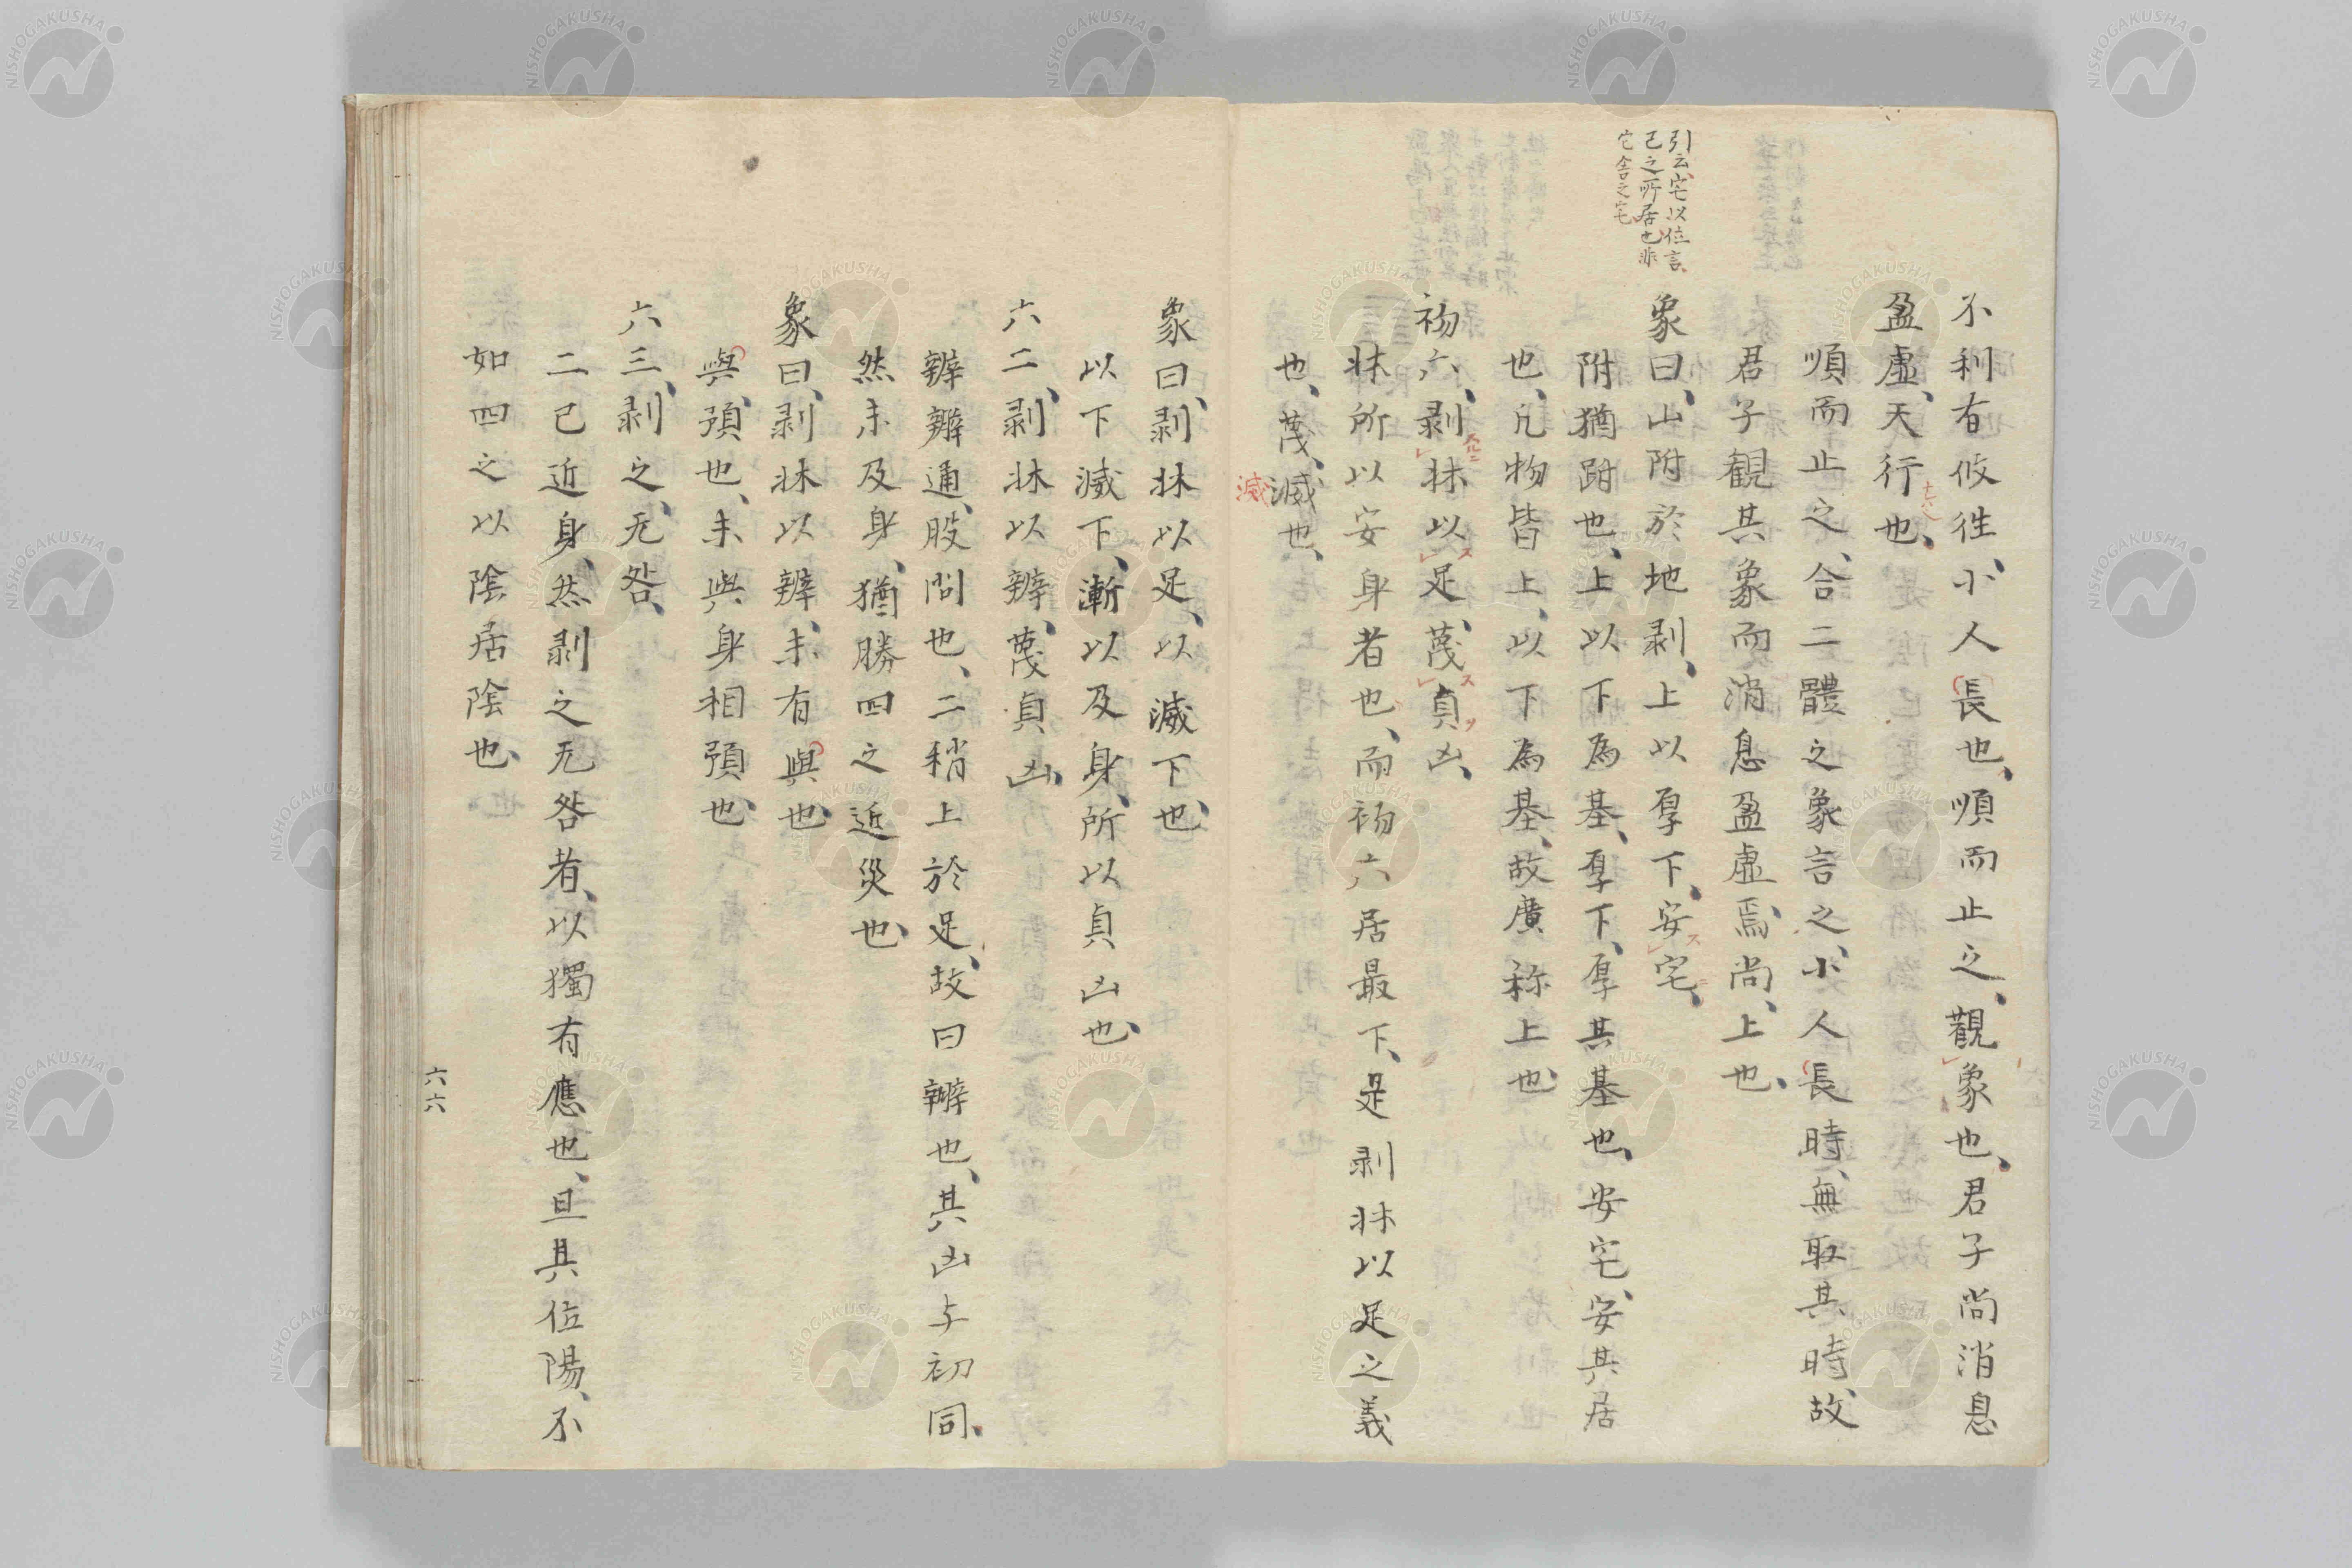 引云、宅以位言、
己之所居也、非
宅舎之宅
不利有攸往、小人長也、順而止之、觀象也、君子尚消息
盈虛、天行也、
順而止之、合二體之象言之、小人長時、無取其時、故
君子観其象而消息盈虛焉、尚、上也、
象曰、山附於地剥、上以厚下、安宅、
附猶跗也、上以下為基、厚下、厚其基也、安宅、安其居
也、凡物皆上、以下為基、故廣称上也、
初六、剥牀以足、蔑貞凶、
牀所以安身者也、而初六居最下、是剥牀以足之義
也、蔑、滅也、
滅
象曰、剥牀以足、以滅下也、
以下滅下、漸以及身、所以貞凶也、
六二、剥牀以辨、蔑貞凶、
辨辦通、股間也、二稍上於足、故曰辨也、其凶与初同、
然未及身、猶勝四之近災也、
象曰、剥牀以辨、未有與也、
與、預也、未與身相預也、
六三、剥之、无咎、
二已近身、然剥之无咎者、以獨有應也、且其位陽、不
如四之以陰居陰也、
六六
NISHOGAKUSHA